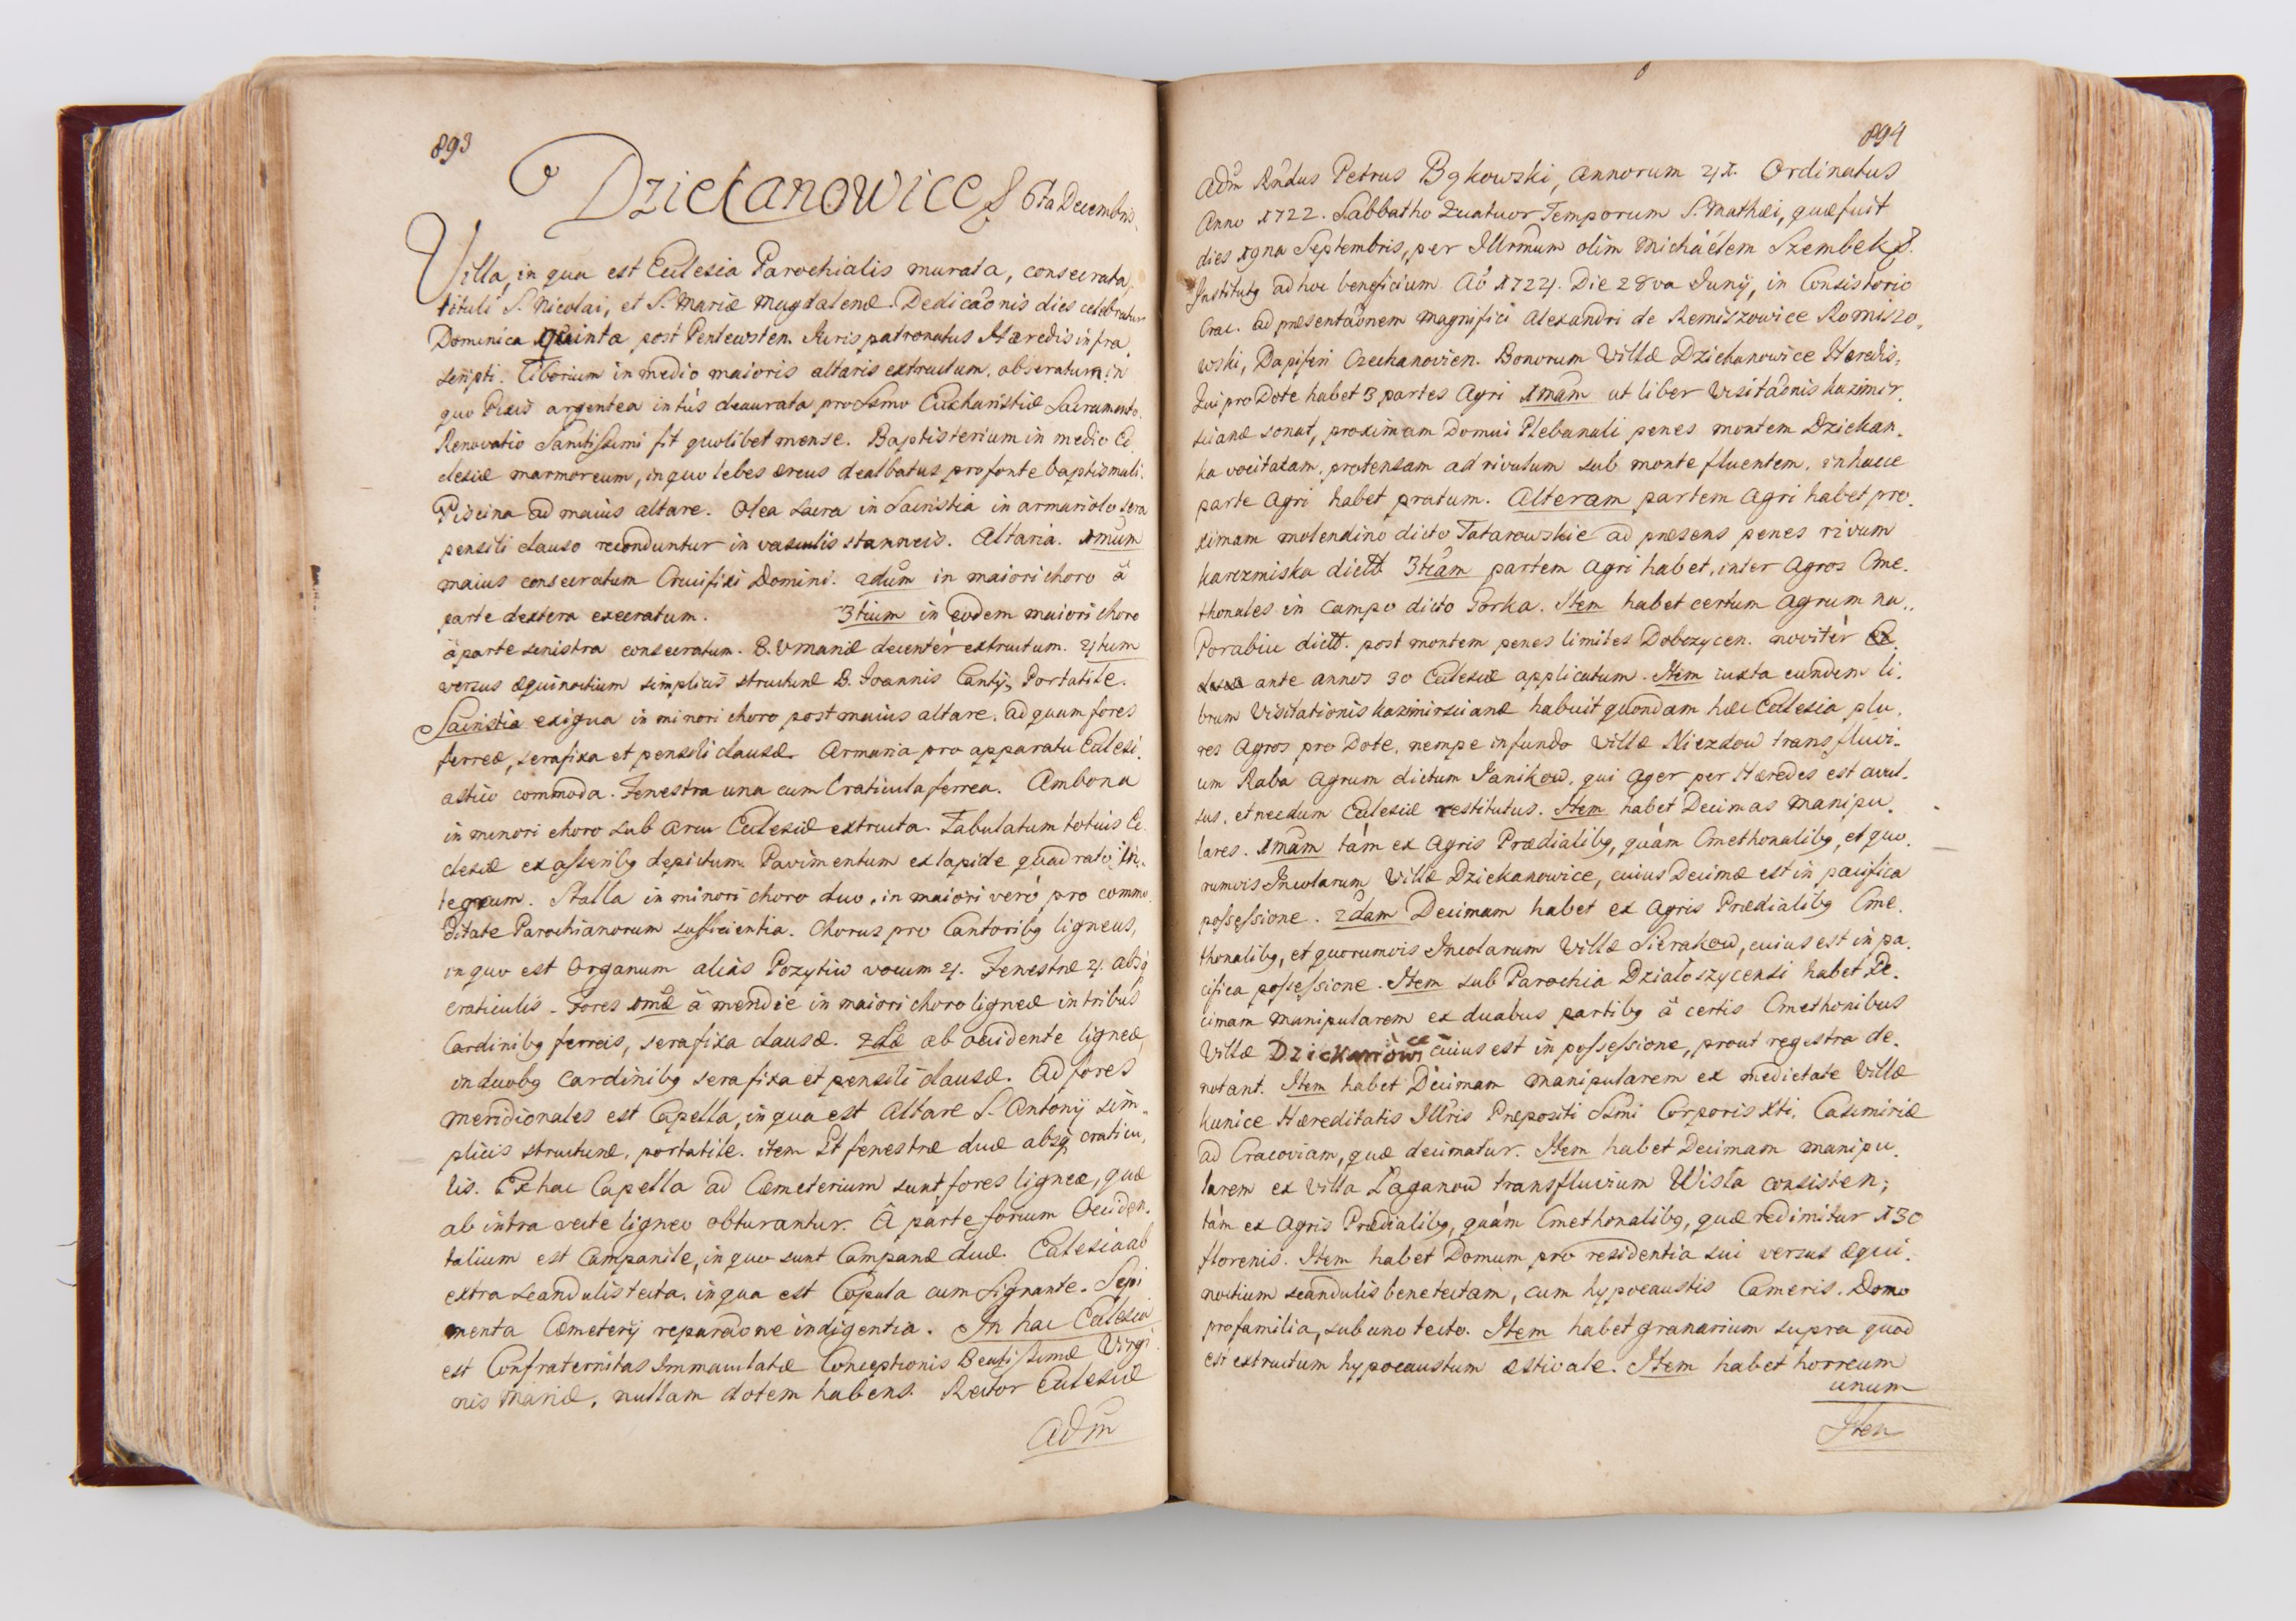 893
Dziekanowice 6ta Decembris.
Villa, in qua est Ecclesia Parochialis murata, consecrata,
tituli S. Nicolai, et S. Mariæ Magdalenæ. Dedicaõnis dies celebratur
Dominica Quinta post Pentecosten. Iuris patronatus Hæredis infra
scripti. Ciborium in medio maioris altaris extructum, obseratum, in
quo Pixis argentea intùs deaurata pro Ssmo Eucharistiæ Sacramento.
Renovatio Sanctissimi fit quolibet mense. Baptisterium in medio Ec
clesiæ marmoreum, in quo lebes æreus dealbatus pro fonte baptismali.
Piscina ad maius altare. Olea sacra in Sacristia in armariolo sera
pensili clauso reconduntur in vasculis stanneis. Altaria. 1mum
maius consecratum Crucifixi Domini. 2dum in maiori choro à
parte dextera execratum. 3tium in eodem maiori choro
à parte sinistra consecratum. B. V Mariæ decentèr extructum. 4tum
versus æquinoctium simplicis structuræ B. Ioannis Cantij, Portatile.
Sacristia exigua in minori choro post maius altare, ad quam fores
ferreæ, sera fixa et pensili clausæ. Armaria pro apparatu Eclesi.
astico commoda. Fenestra una cum Craticula ferrea. Ambona
in minori choro sub arcu Ecclesiæ extructa. Tabulatum totius Ec
clesiæ ex asseribg depictum. Pavimentum ex lapide quadrato in,
tegrum. Stalla in minori choro duo, in maiori verò pro commo
ditate Parochianorum sufficientia. Chorus pro Cantoribg ligneus,
in quo est Organum aliàs Pozytiw vocum 4. Fenestræ 4. absq
craticulis. Fores 1mæ à meridie in maiori choro ligneæ in tribus
Cardinibg ferreis, sera fixa clausæ. 2dæ ab occidente ligneæ,
in duobg Cardinibg sera fixa et pensili clausæ. Ad fores
meridionales est Capella, in qua est Altare S. Antonij sim-
plicis structuræ, portatile. item Et fenestræ duæ absq craticu,
lis. Ex hac Capella ad Cæmeterium sunt fores ligneæ, quæ
ab intra vecte ligneo obturantur. A parte forium Occiden.
talium est Campanile, in quo sunt Campanæ duæ. Ecclesia ab
extra scandulis tecta, in qua est Copula cum Signante. Sepi
menta Cæmeterij reparaõne indigentia. In hac Ecclesia
est Confraternitas Immaculatæ Conceptionis Beatissimæ Virgi
nis Mariæ, nullam dotem habens. Rector Ecclesiæ
Adm
894
Adm Rndus Petrus Bgkowski, Annorum 41. Ordinatus
Anno 1722. Sabbatho Quatuor Temporum S. Mathæi, quæ fuit
dies 19na Septembris, per Illrmum olim Michaélem Szembek.
Institutg ad hoc beneficium Aõ 1724. Die 28va Junij, in Consistorio
Crac. ad præsentaõnem Magnifici Alexandri de Remiszowice Romiszo,
wski, Dapiferi Czechanovien. Bonorum Villæ Dziekanowice Hæredis,
Qui pro Dote habet 3 partes Agri 1mam ut liber Visitaõnis Kazimir,
scianæ sonat, proximam Domui Plebanali penes montem Dziekan,
ka vocitatam, protensam ad rivulum sub monte fluentem, in hacce
parte Agri habet pratum. Alteram partem Agri habet pro,
ximam molendino dicto Tatarowskie ad præsens penes rivum
karczmiska dictt 3tiam partem Agri habet, inter Agros Cme.
thonales in campo dicto Gorka. Item habet certum Agrum na,,
Porabiu dictt. post montem penes limites Dobczycen. novitèr
ante annos 30 Ecclesiæ applicatum. Item iuxta eundem li.
brum Visitationis Kazimirscianæ habuit quondam hæc Ecclesia plu,
res Agros pro Dote, nempe in fundo Villæ Niezdow trans fluvi-
um Raba Agrum dictum Janikow, qui Ager per Hæredes est avul.
sus, et necdum Ecclesiæ restitutus. Item habet Decimas Manipu,
lares. 1mam tám ex Agris Prædialibg, quám Cmethonalibg, et quo.
rumvis Incolarum Villæ Dziekanowice, cuius Decimæ est in pacifica
possessione. 2dam Decimam habet ex Agris Prædialibg Cme.
thonalibg, et quorumvis Incolarum Villæ Sierakow, cuius est in pa.
cifica possessione. Item sub Parochia Działoszycensi habet De.
cimam manipularem ex duabus partibg à certis Cmethonibus
Villæ Dziekanowice cuius est in possessione, prout regestra de.
notant. Item habet Decimam manipularem ex medietate Villæ
Kunice Hæreditatis Illris Præpositi Ssmi Corporis Xti, Casimiriæ
ad Cracoviam, quæ decimatur. Item habet Decimam manipu,
larem ex Villa Łaganow trans fluvium Wisła consisten;
tám ex Agris Prædialibg, quám Cmethonalibg, quæ redimitur 130
florenis. Item habet Domum pro residentia sui versus æqui.
noctium scandulis bene tectam, cum hypocaustis Cameris. Domo
pro familia, sub uno tecto. Item habet granarium supra quod
est extructum hypocaustum æstivale. Item habet horreum
unum
Item